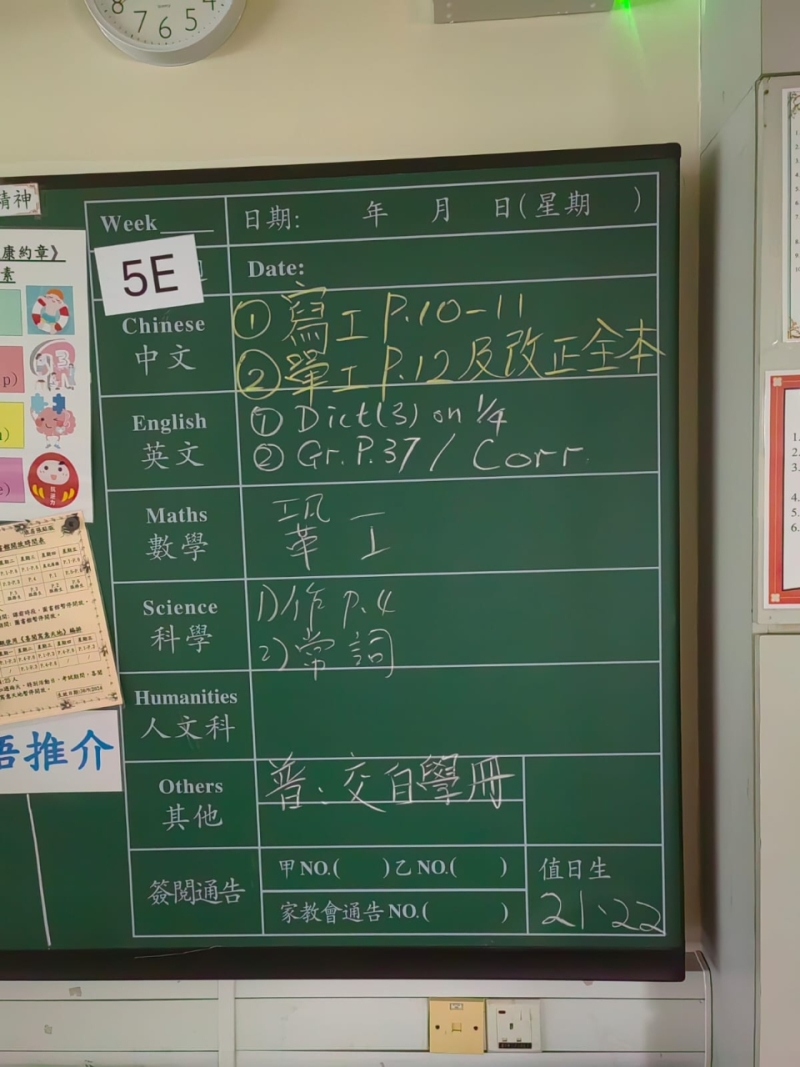 8 7 6 5 4
精神
康約章》
素
Week
日期: 年 月 日(星期 )
5E
Date:
Chinese
中文
① 寫工 P.10-11
② 單工 P.12及改正全本
English
英文
① Dict(3) on 1/4
② Gr.P.37 / Corr.
Maths
數學
鞏工
Science
科學
1)作 P.4
2)常詞
Humanities
人文科
Others
其他
普:交自學冊
語推介
簽閱通告
甲NO.( )乙NO.( )
家教會通告NO.( )
值日生
21、22